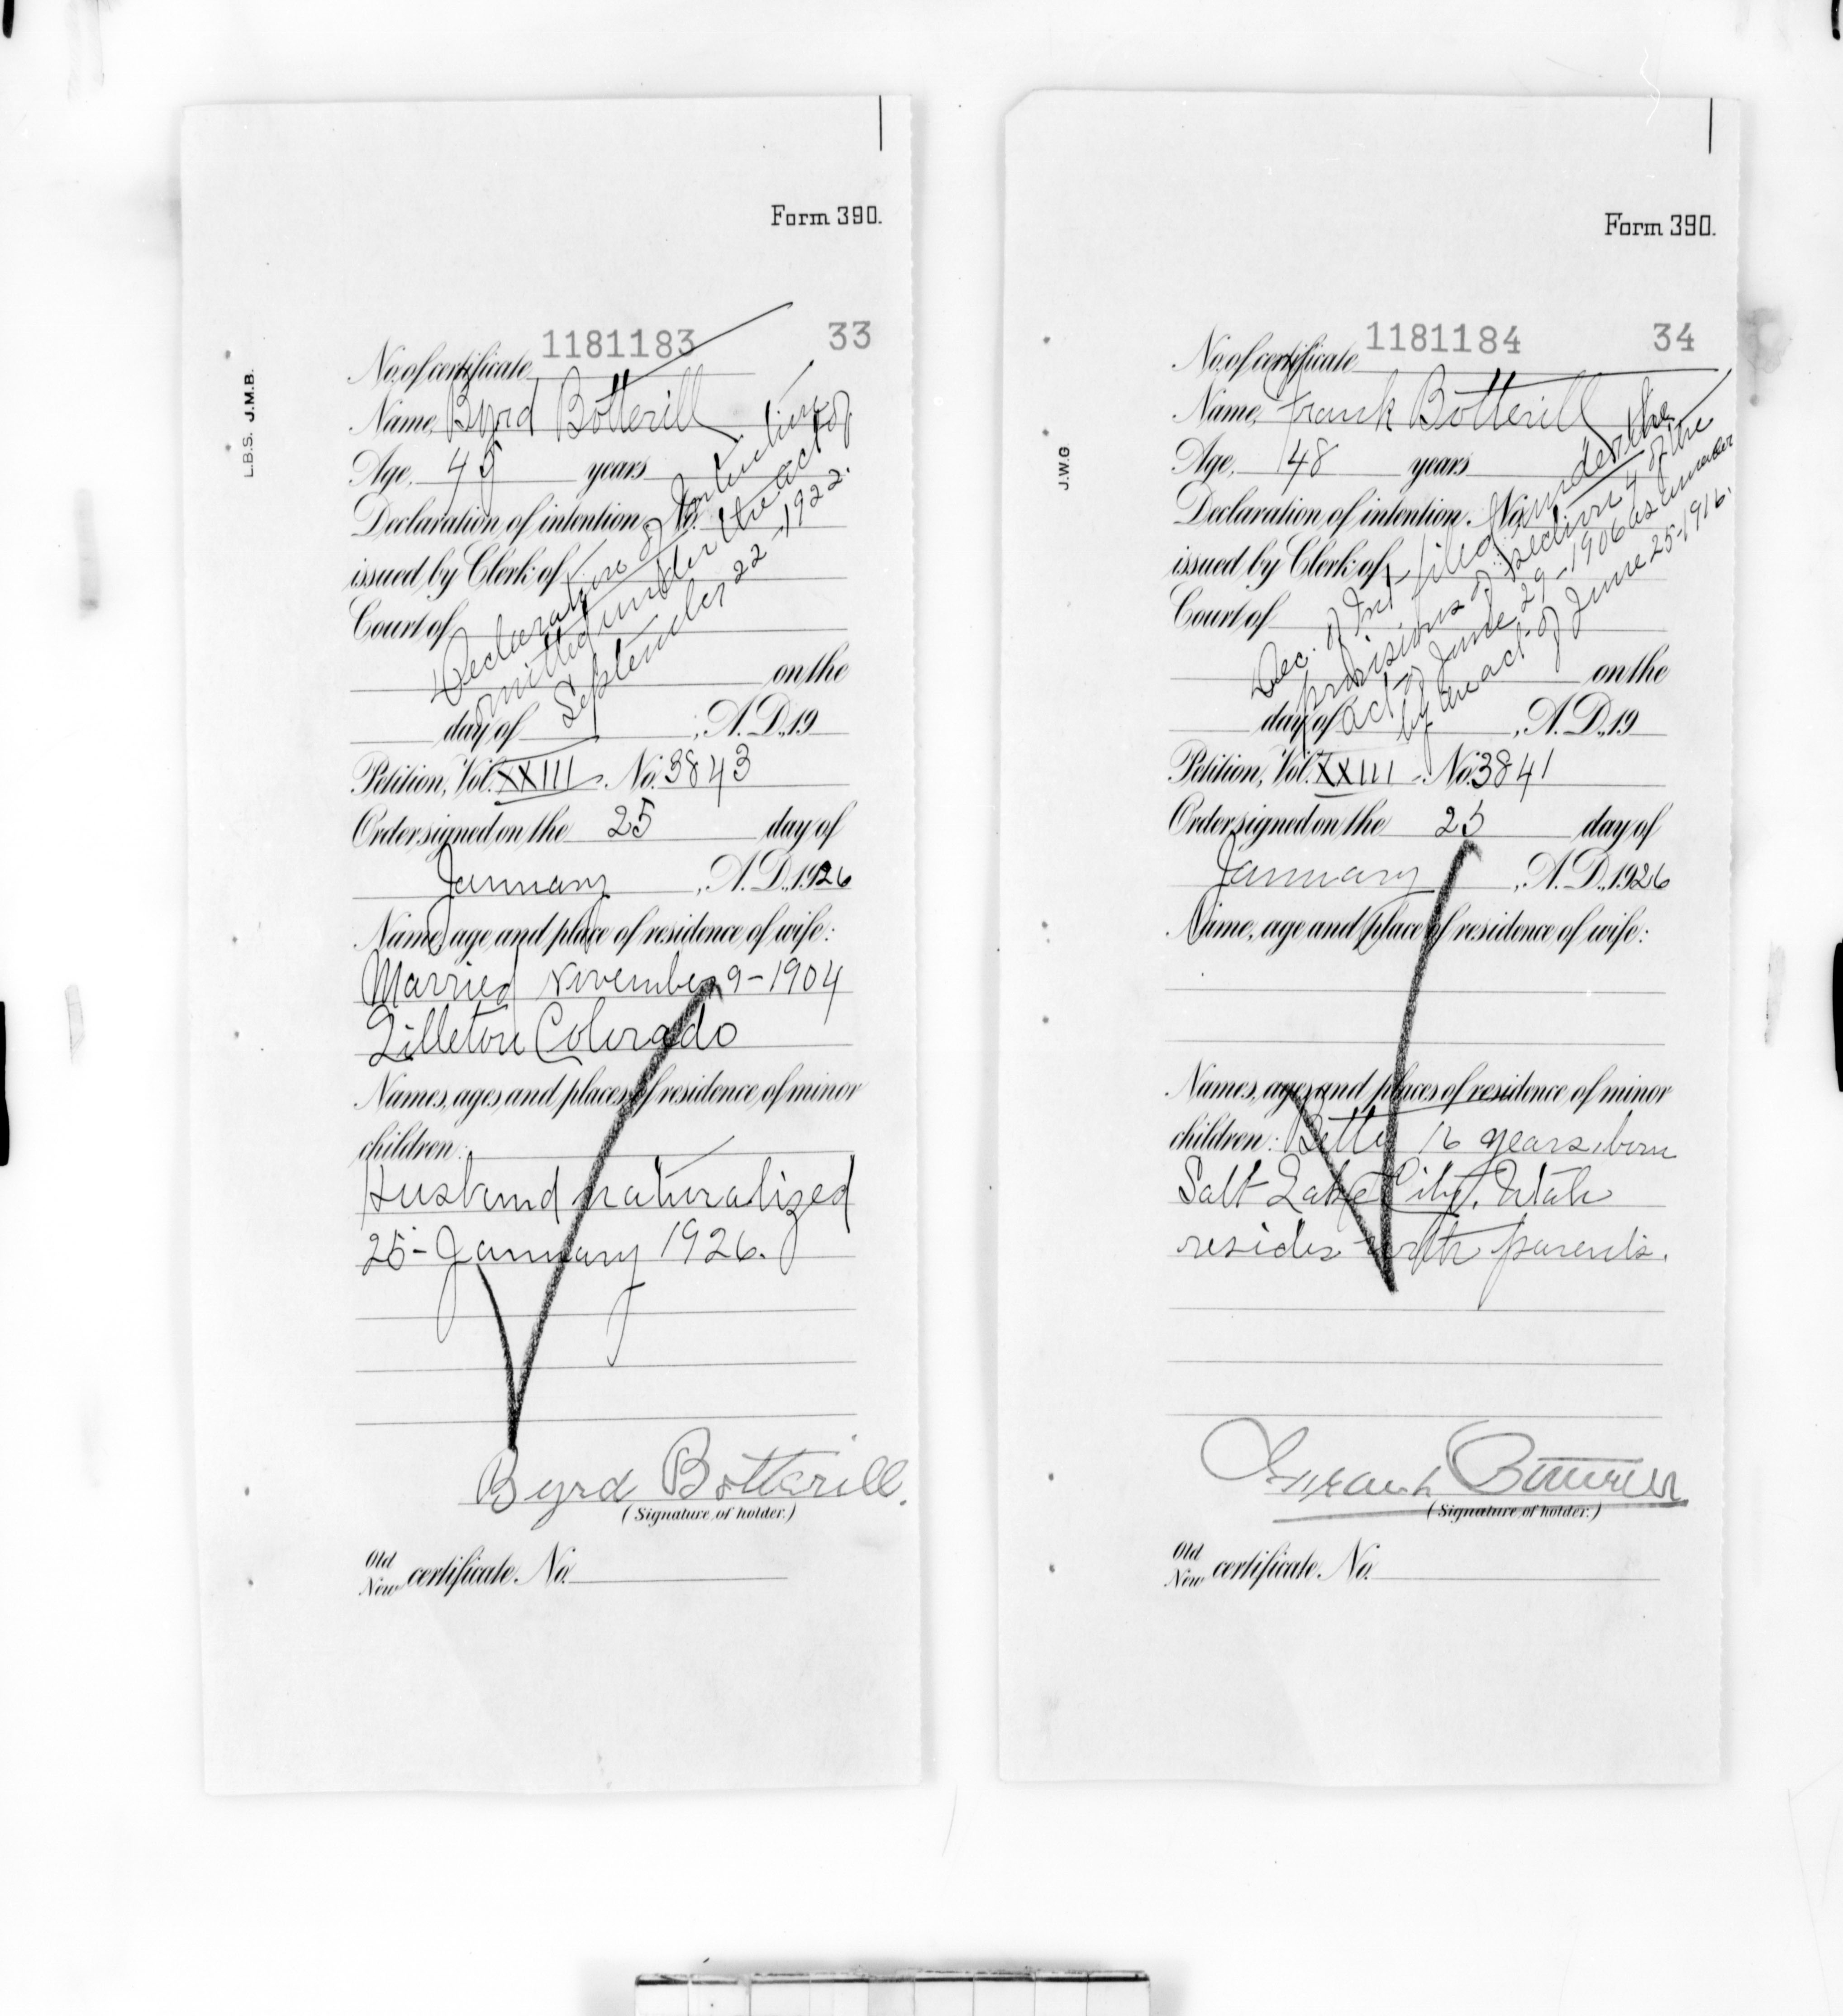 Form 390.
L.B.S. J.M.B.
33
No. of certificate 1181183
Name, Byrd Botterill
Age, 45 years
Declaration of intention, No.
issued by Clerk of
Court of
Declaration of Intention
omitted under the act of
September 22-1922.
on the
day of , A. D., 19
Petition, Vol. XXIII No. 3843
Order signed on the 25 day of
January , A. D., 1926
Name, age and place of residence of wife:
Married November 9-1904
Littleton Colorado
Names, ages and places of residence of minor
children:
Husband naturalized
25-January 1926.
Byrd Botterill.
(Signature of holder.)
Old
New certificate. No.
Form 390.
J.W.G
34
No. of certificate 1181184
Name, Frank Botterill
Age, 48 years
Declaration of intention, No.
issued by Clerk of
Court of
Dec. of Int filed under the
provisions of section 4 of the
act of June 29-1906 as amended
by the act of June 25-1916.
on the
day of , A. D., 19
Petition, Vol. XXIII No. 3841
Order signed on the 25 day of
January , A. D., 1926
Name, age and place of residence of wife:
Names, ages and places of residence of minor
children: Betty 16 years, born
Salt Lake City, Utah
resides with parents.
Frank Botterill
(Signature of holder.)
Old
New certificate. No.